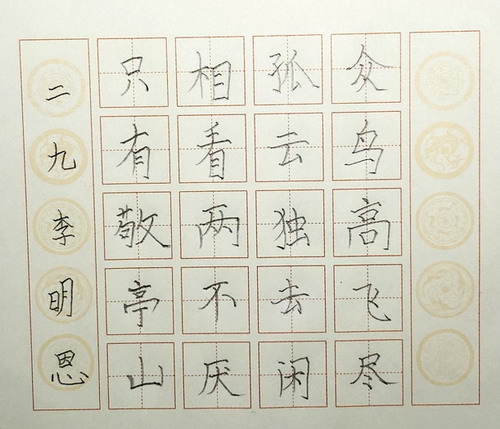 众鸟高飞尽
孤云独去闲
相看两不厌
只有敬亭山
二九李明恩